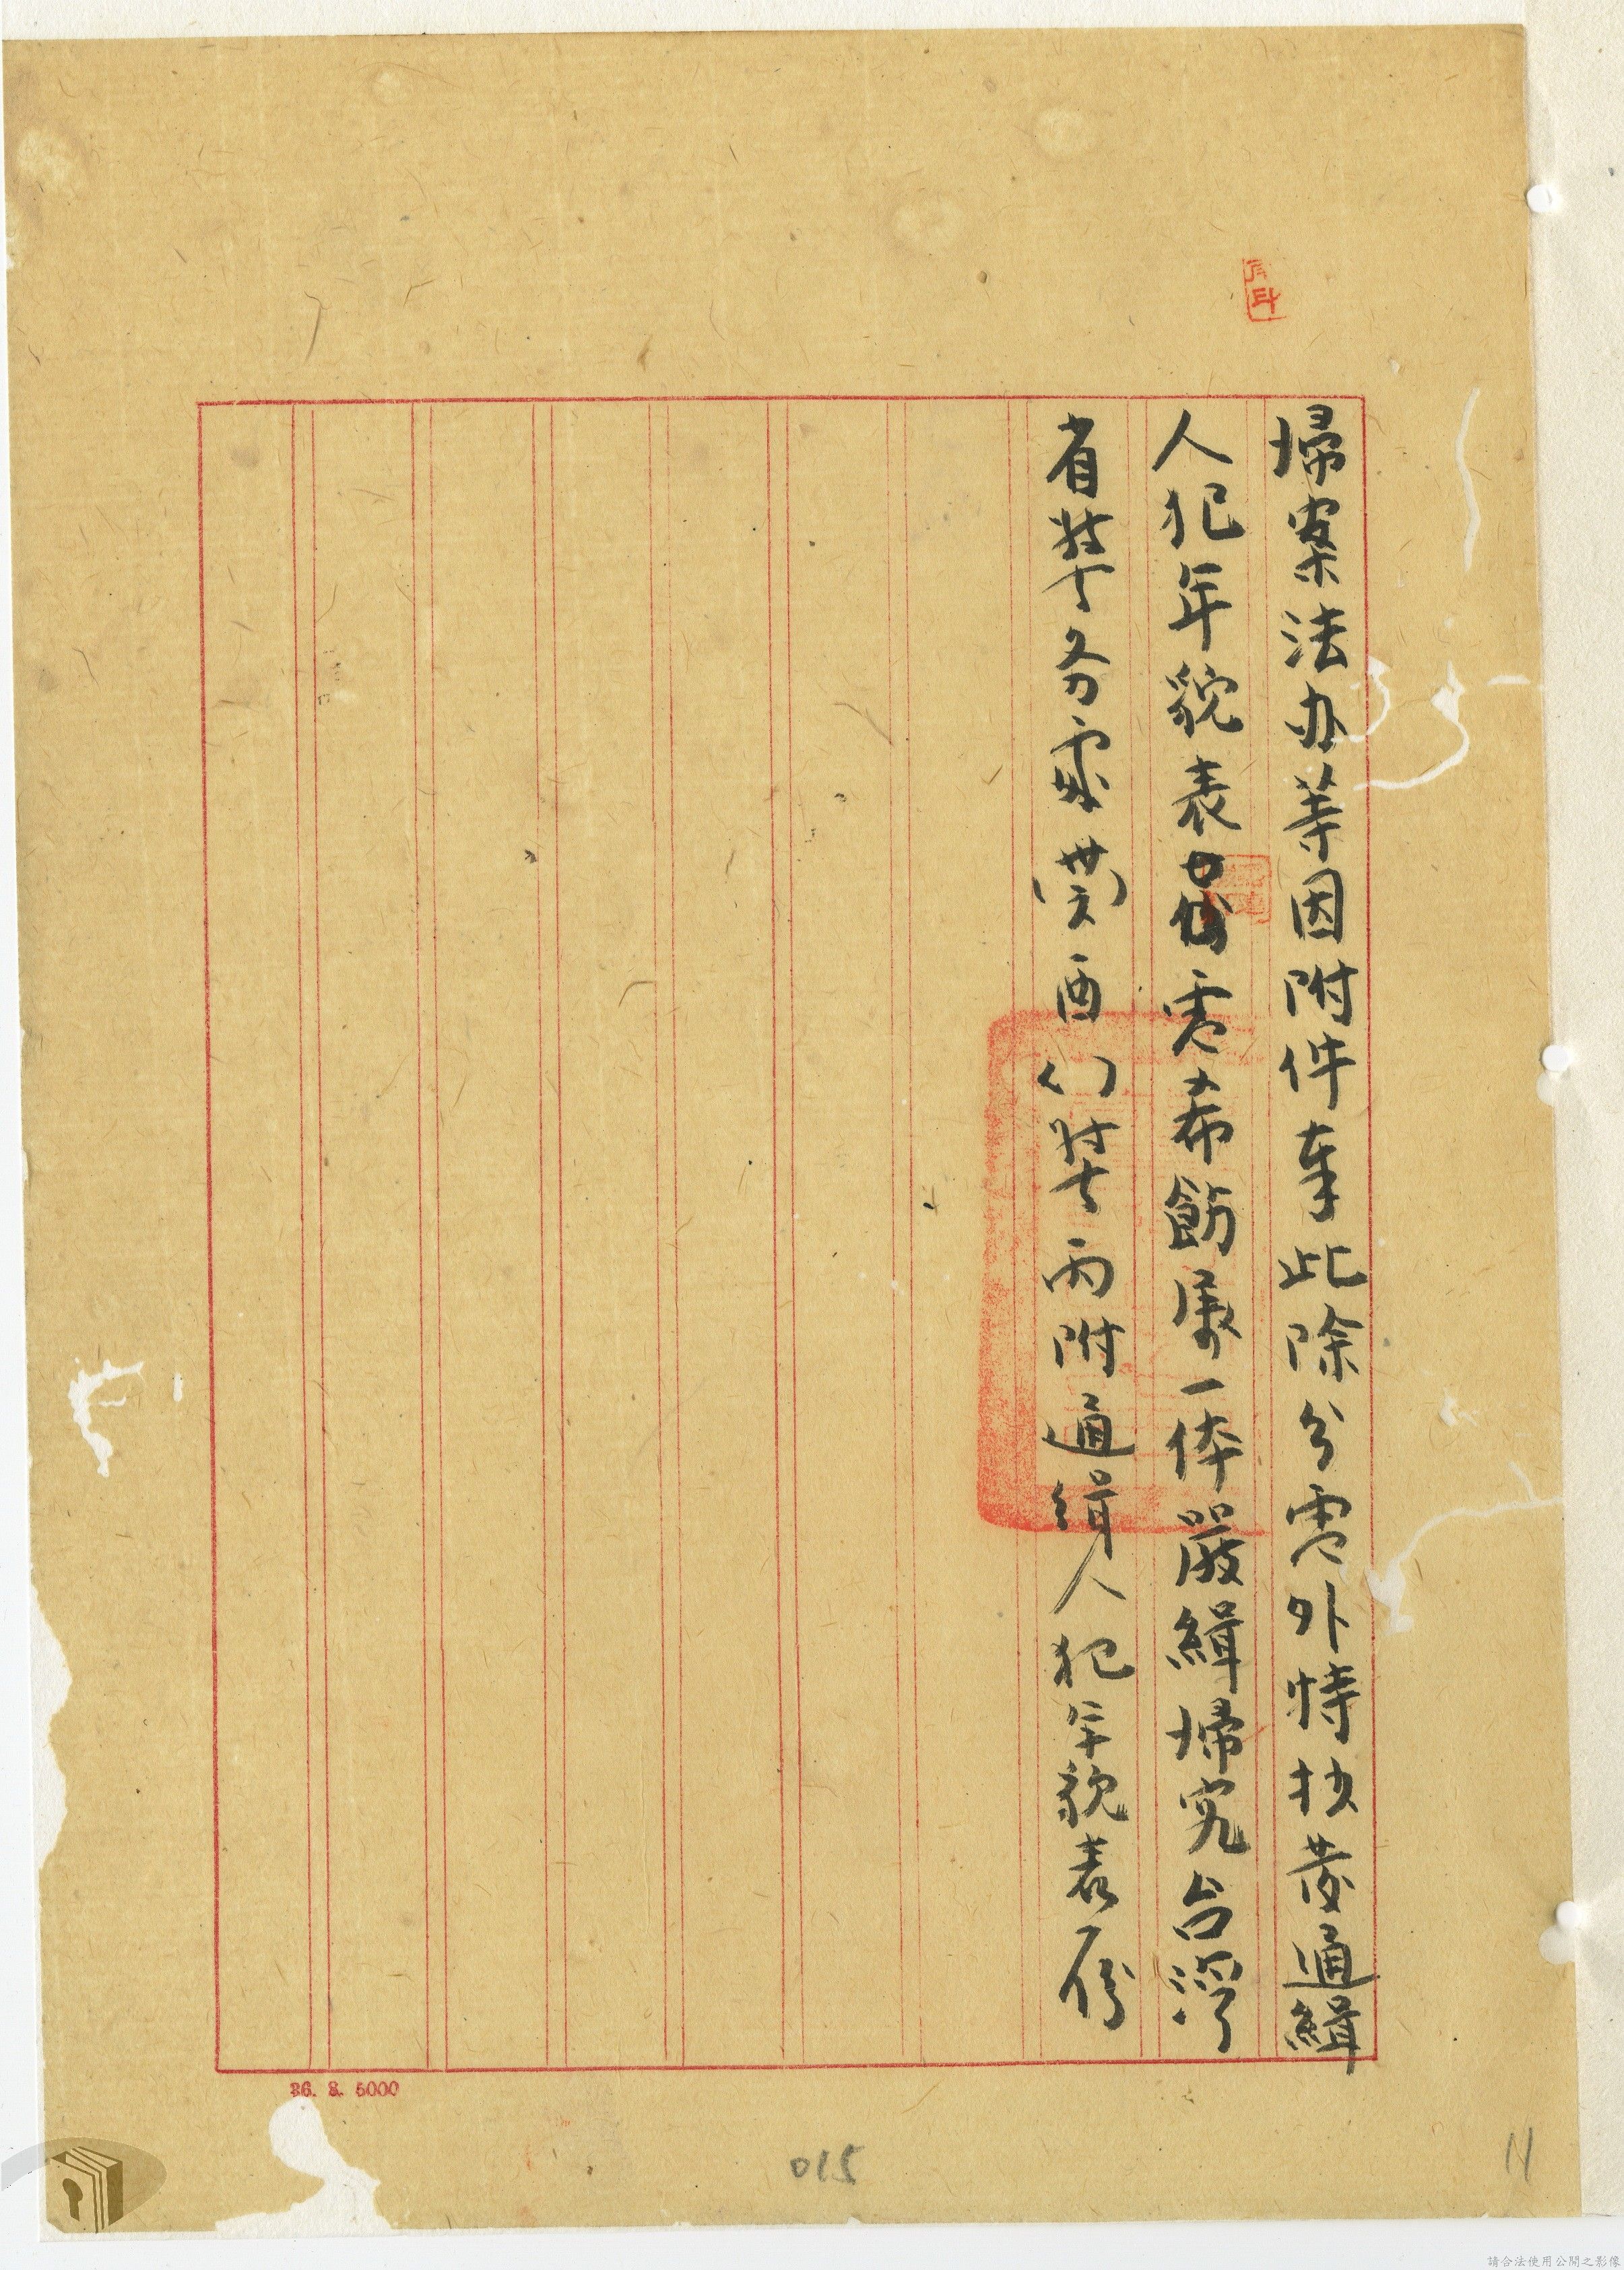 歸案法办等因附件奉此除分電外特抄發通緝
人犯年貌表電希飭屬一体嚴緝歸究台灣
省警务處(卅六)酉()警丙附通緝人犯年貌表一份
36. 8. 5000
015
11
請合法使用公開之影像